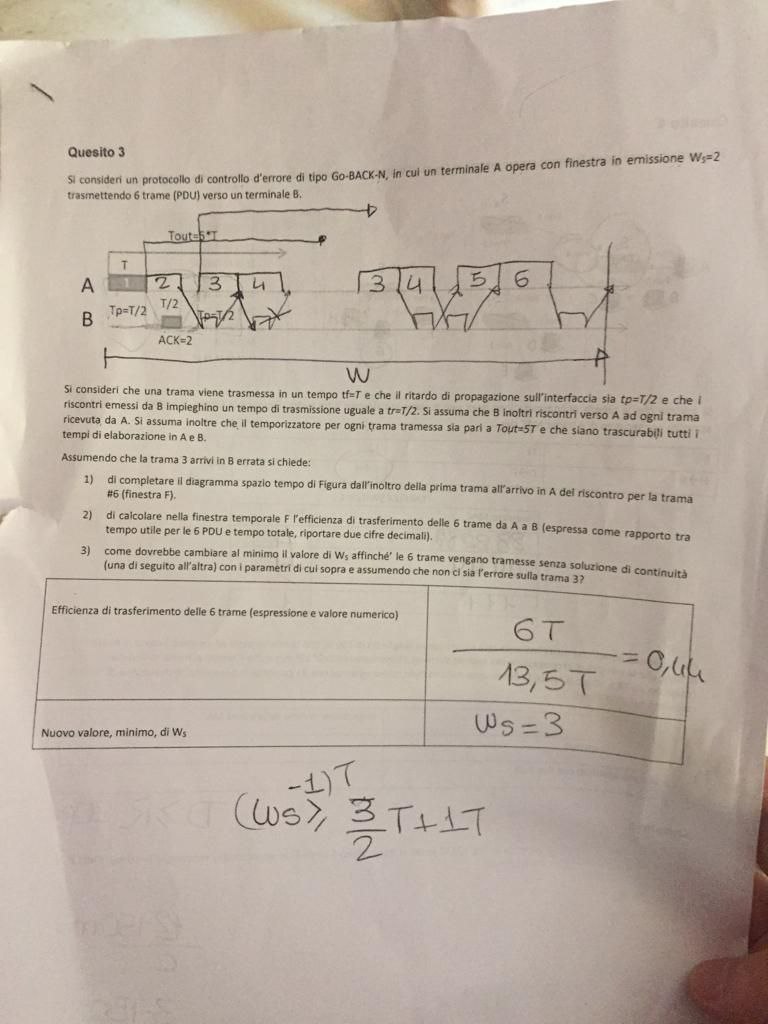 Quesito 3
Si consideri un protocollo di controllo d'errore di tipo Go-BACK-N, in cui un terminale A opera con finestra in emissione Ws=2
trasmettendo 6 trame (PDU) verso un terminale B.
Tout=5*T
T
A 1 2 3 4 3 4 5 6
Tp=T/2 T/2 Tp=T/2
B
ACK=2
W
Si consideri che una trama viene trasmessa in un tempo tf=T e che il ritardo di propagazione sull'interfaccia sia tp=T/2 e che i
riscontri emessi da B impieghino un tempo di trasmissione uguale a tr=T/2. Si assuma che B inoltri riscontri verso A ad ogni trama
ricevuta da A. Si assuma inoltre che il temporizzatore per ogni trama tramessa sia pari a Tout=5T e che siano trascurabili tutti i
tempi di elaborazione in A e B.
Assumendo che la trama 3 arrivi in B errata si chiede:
1) di completare il diagramma spazio tempo di Figura dall'inoltro della prima trama all'arrivo in A del riscontro per la trama
#6 (finestra F).
2) di calcolare nella finestra temporale F l'efficienza di trasferimento delle 6 trame da A a B (espressa come rapporto tra
tempo utile per le 6 PDU e tempo totale, riportare due cifre decimali).
3) come dovrebbe cambiare al minimo il valore di Ws affinché' le 6 trame vengano tramesse senza soluzione di continuità
(una di seguito all'altra) con i parametri di cui sopra e assumendo che non ci sia l'errore sulla trama 3?
Efficienza di trasferimento delle 6 trame (espressione e valore numerico)
6T
13,5T
= 0,44
Nuovo valore, minimo, di Ws
Ws = 3
-1)T
(Ws ≥ 3/2 T+1T